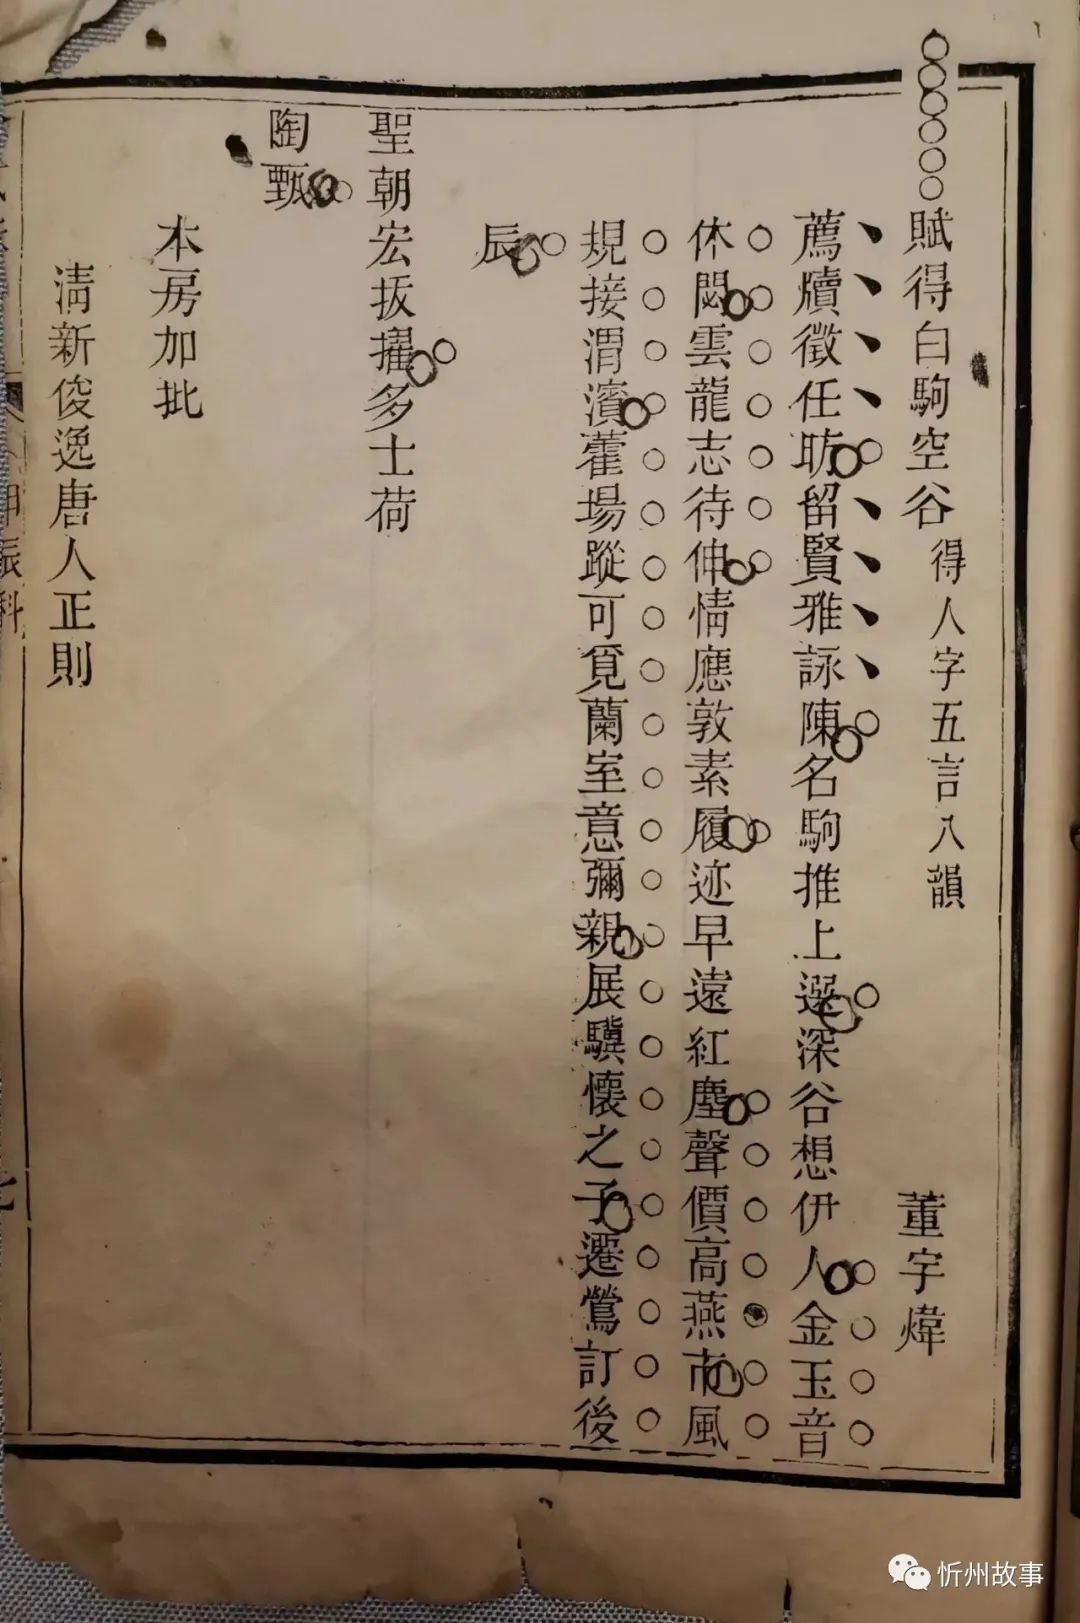 賦得白駒空谷得人字五言八韻 董宇煒
薦牘徵任昉留賢雅詠陳名駒推上選深谷想伊人金玉音
休閟雲龍志待伸情應敦素履迹早遠紅塵聲價高燕市風
規接渭濱藿場蹤可覓蘭室意彌親展驥懷之子遷鶯訂後
辰
聖朝宏拔擢多士荷
陶甄
本房加批
清新俊逸唐人正則
忻州故事